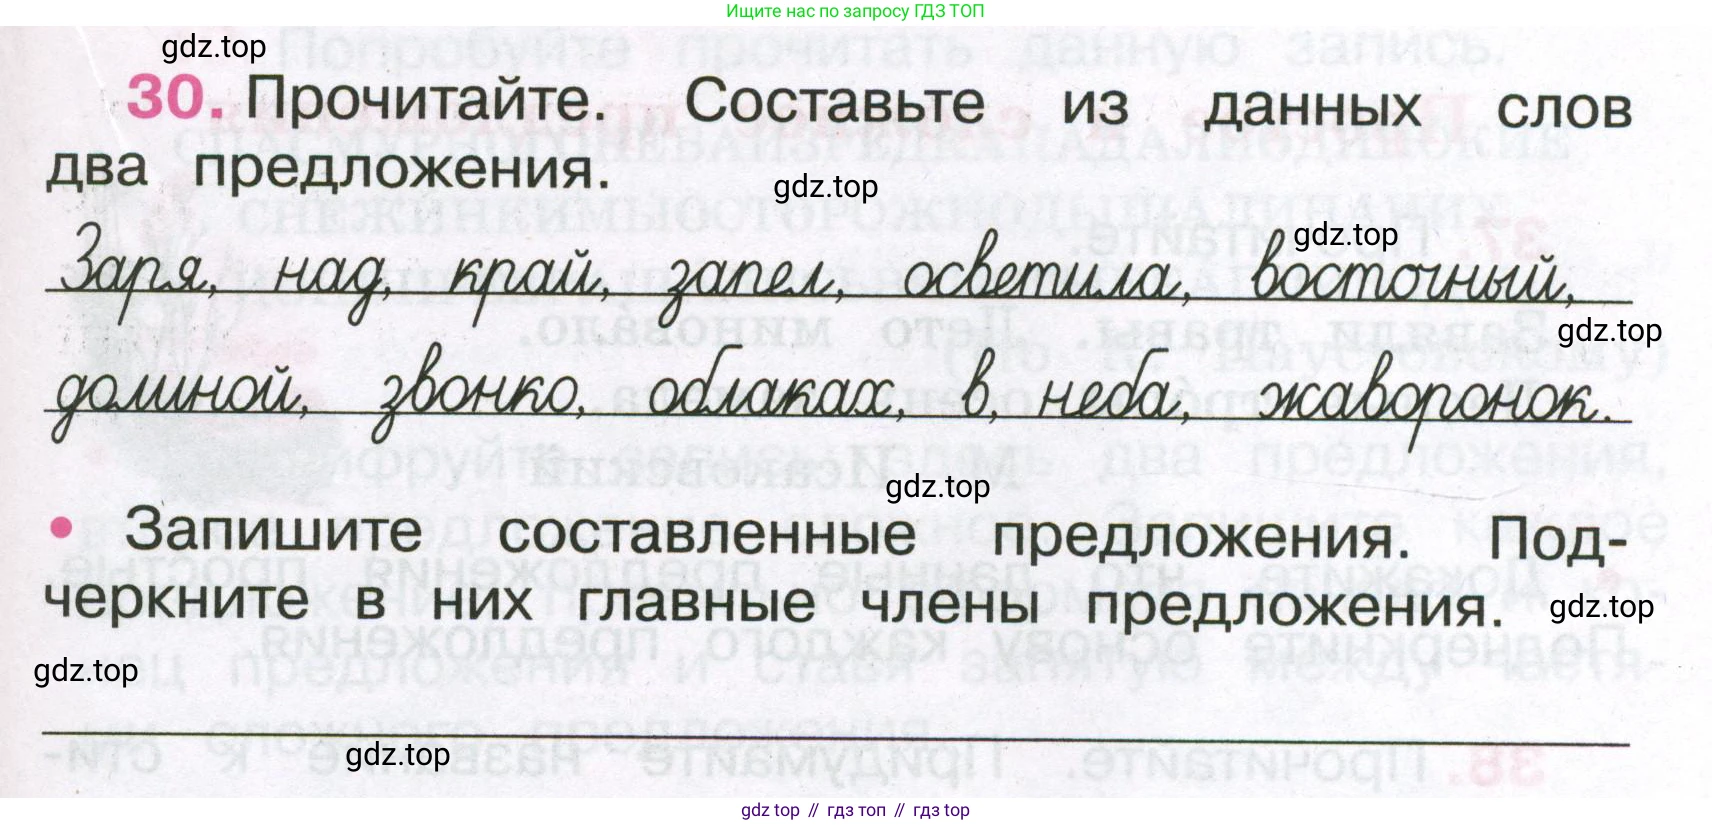 Ищите нас по запросу ГДЗ ТОП
gdz.top
30. Прочитайте. Составьте из данных слов
два предложения.
gdz.top
gdz.top
Заря, над, край, запел, осветила, восточный,
gdz.top
долиной, звонко, облаках, в, неба, жаворонок.
gdz.top
• Запишите составленные предложения. Под-
черкните в них главные члены предложения.
gdz.top
gdz.top
gdz.top
gdz top // гдз топ // gdz top